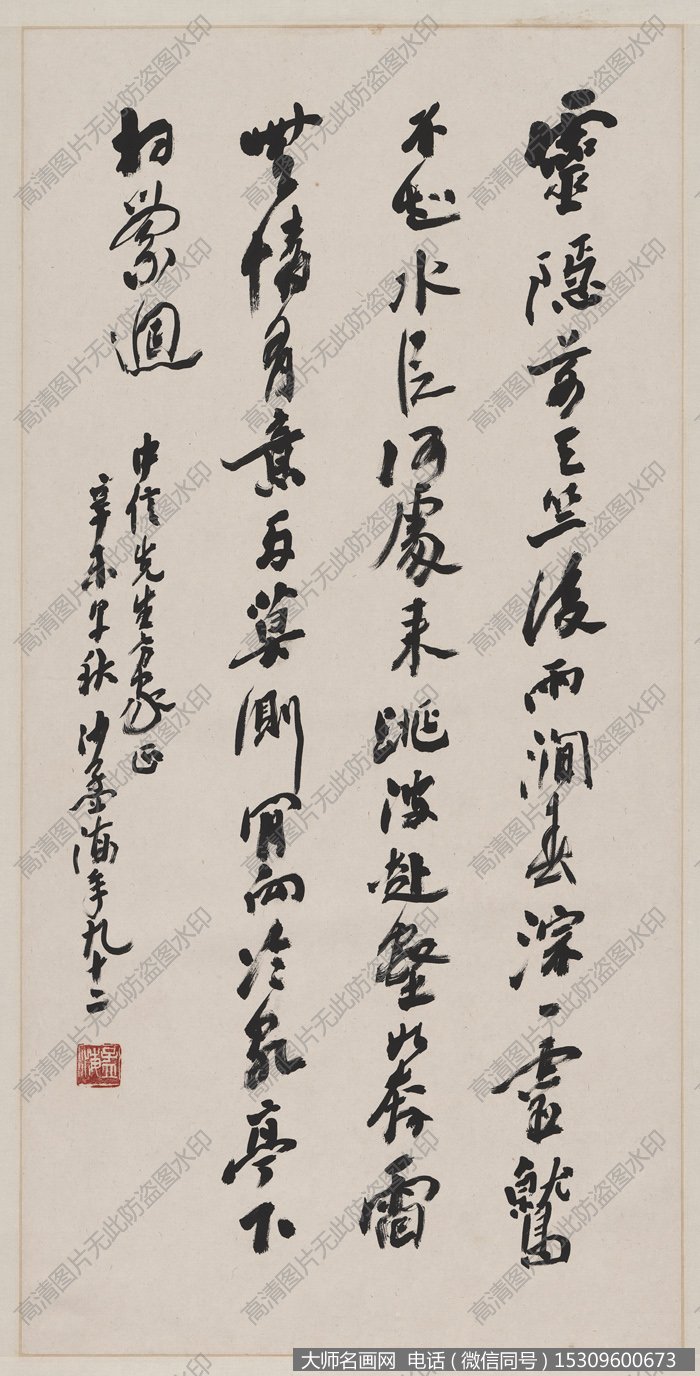 靈隱前天竺後兩澗春淙一靈鷲
不知水從何處來跳波赴壑如奔雷
無情有意兩莫測肯向冷泉亭下
相縈迴
中信先生方家正
辛未早秋沙孟海年九十二
孟海
高清图片无此防盗图水印
大师名画网 电话(微信同号)15309600673